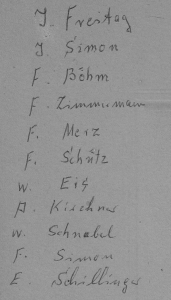 J. Freitag
J. Simon
F. Böhm
F. Zimmermann
F. Merz
F. Schütz
W. Eis
A. Kirchner
W. Schnabel
F. Simon
E. Schillinger